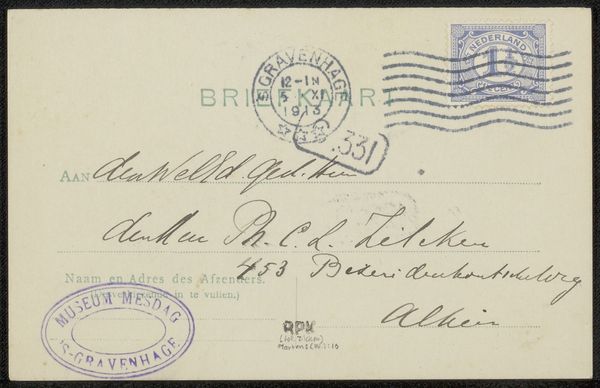 NEDERLAND
1½
CENT
'S-GRAVENHAGE
12-1N
5 XI
1913
BRIEFKAART
331
AAN den WelEd. Geb. Heer
den Heer Ph. C. L. Zilcken
453 Bezuidenhoutscheweg
Alhier
Naam en Adres des Afzenders.
in te vullen.)
MUSEUM MESDAG
'S-GRAVENHAGE
RPK